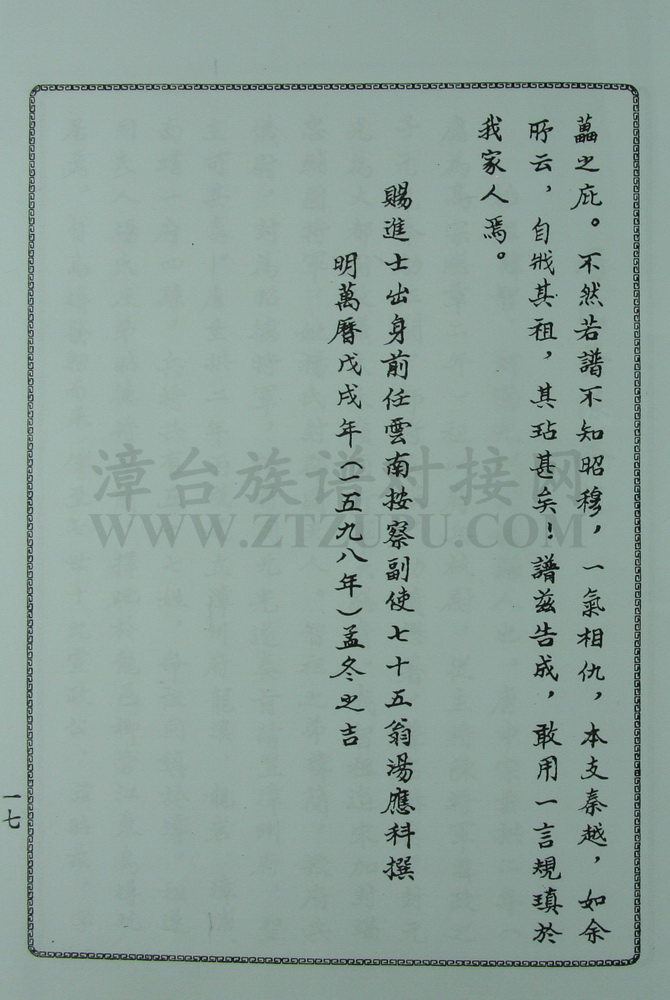 藟之庇。不然若譜不知昭穆，一氣相仇，本支秦越，如余
所云，自戕其祖，其玷甚矣！譜兹告成，敢用一言規瑱於
我家人焉。
賜進士出身前任雲南按察副使七十五翁湯應科撰
明萬曆戊戌年（一五九八年）孟冬之吉
一七
漳台族谱对接网
WWW.ZTZUPU.COM